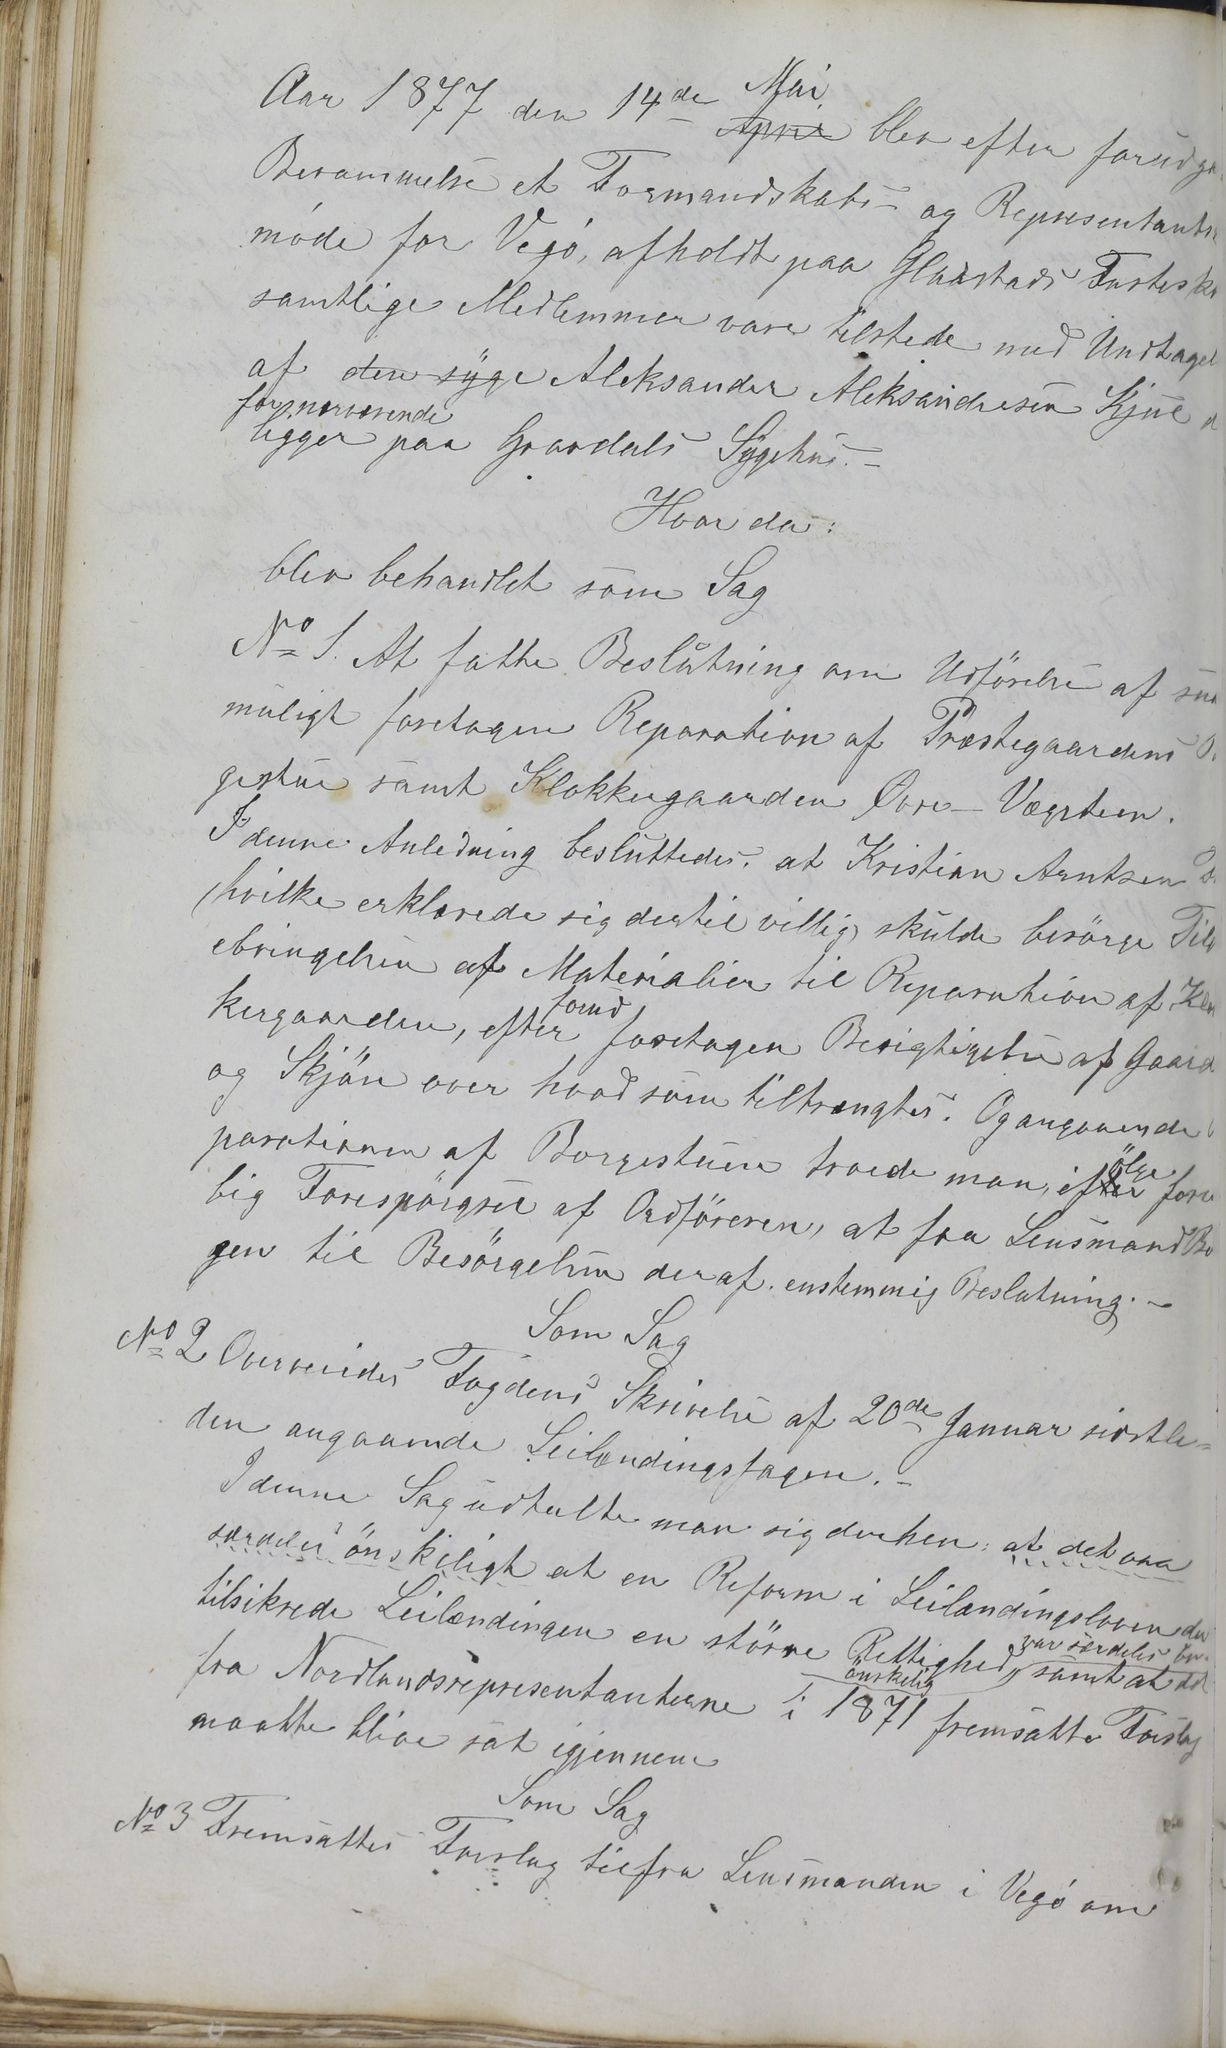 Aar 1877 den 14de Mai
April blev efter forudga
Berammelse et Formandskabs- og Representants
møde for Vegø, afholdt paa Glaastads Fasteska
samtlige Medlemmer vare tilstede med Undtagel
af den syge Aleksander Aleksandersen Kjul d
for nærværende
ligger paa Gravdals Sygehus. -
Hvor da:
blev behandlet som Sag
No 1. At fatte Beslutning om Udförelse af sna
muligt foretagen Reparation af Præstegaardens
gestue samt Klokkergaarden Övre-Vægsteen.
I denne Anledning besluttedes: at Kristian Arntsen
(hvilke erklærede sig dertil villig) skulde besörge Til
ebringelsen af Materialier til Reparation af Klok
kergaarden, efter forud foretagen Besigtigelse af Gaard
og Skjön over hvad som tiltrængtes. Og angaaende
parationen af Borgestuen troede man, efter ölge fore
big Forespörgsel af Ordföreren, at fra Lensmand Bo
gen til Besörgelsen deraf. enstemmig Beslutning. -
Som Sag
No 2 Overveiedes Fogdens Skrivelse af 20de Januar sidstle=
den angaaende Leilændingsfagen. -
I denne Sag udtalte man sig derhen: at det var
særdeles önskeligt at en Reform i Leilændingsloven der
tilsikrede Leilændingen en större Rettighed, var særdeles
önskelig samt at det
fra Nordlandsrepresentanterne i 1871 fremsatte Forslag
maatte blive sat igjennem
Som Sag
No 3 Fremsattes Forslag til fra Lensmanden i Vegö om